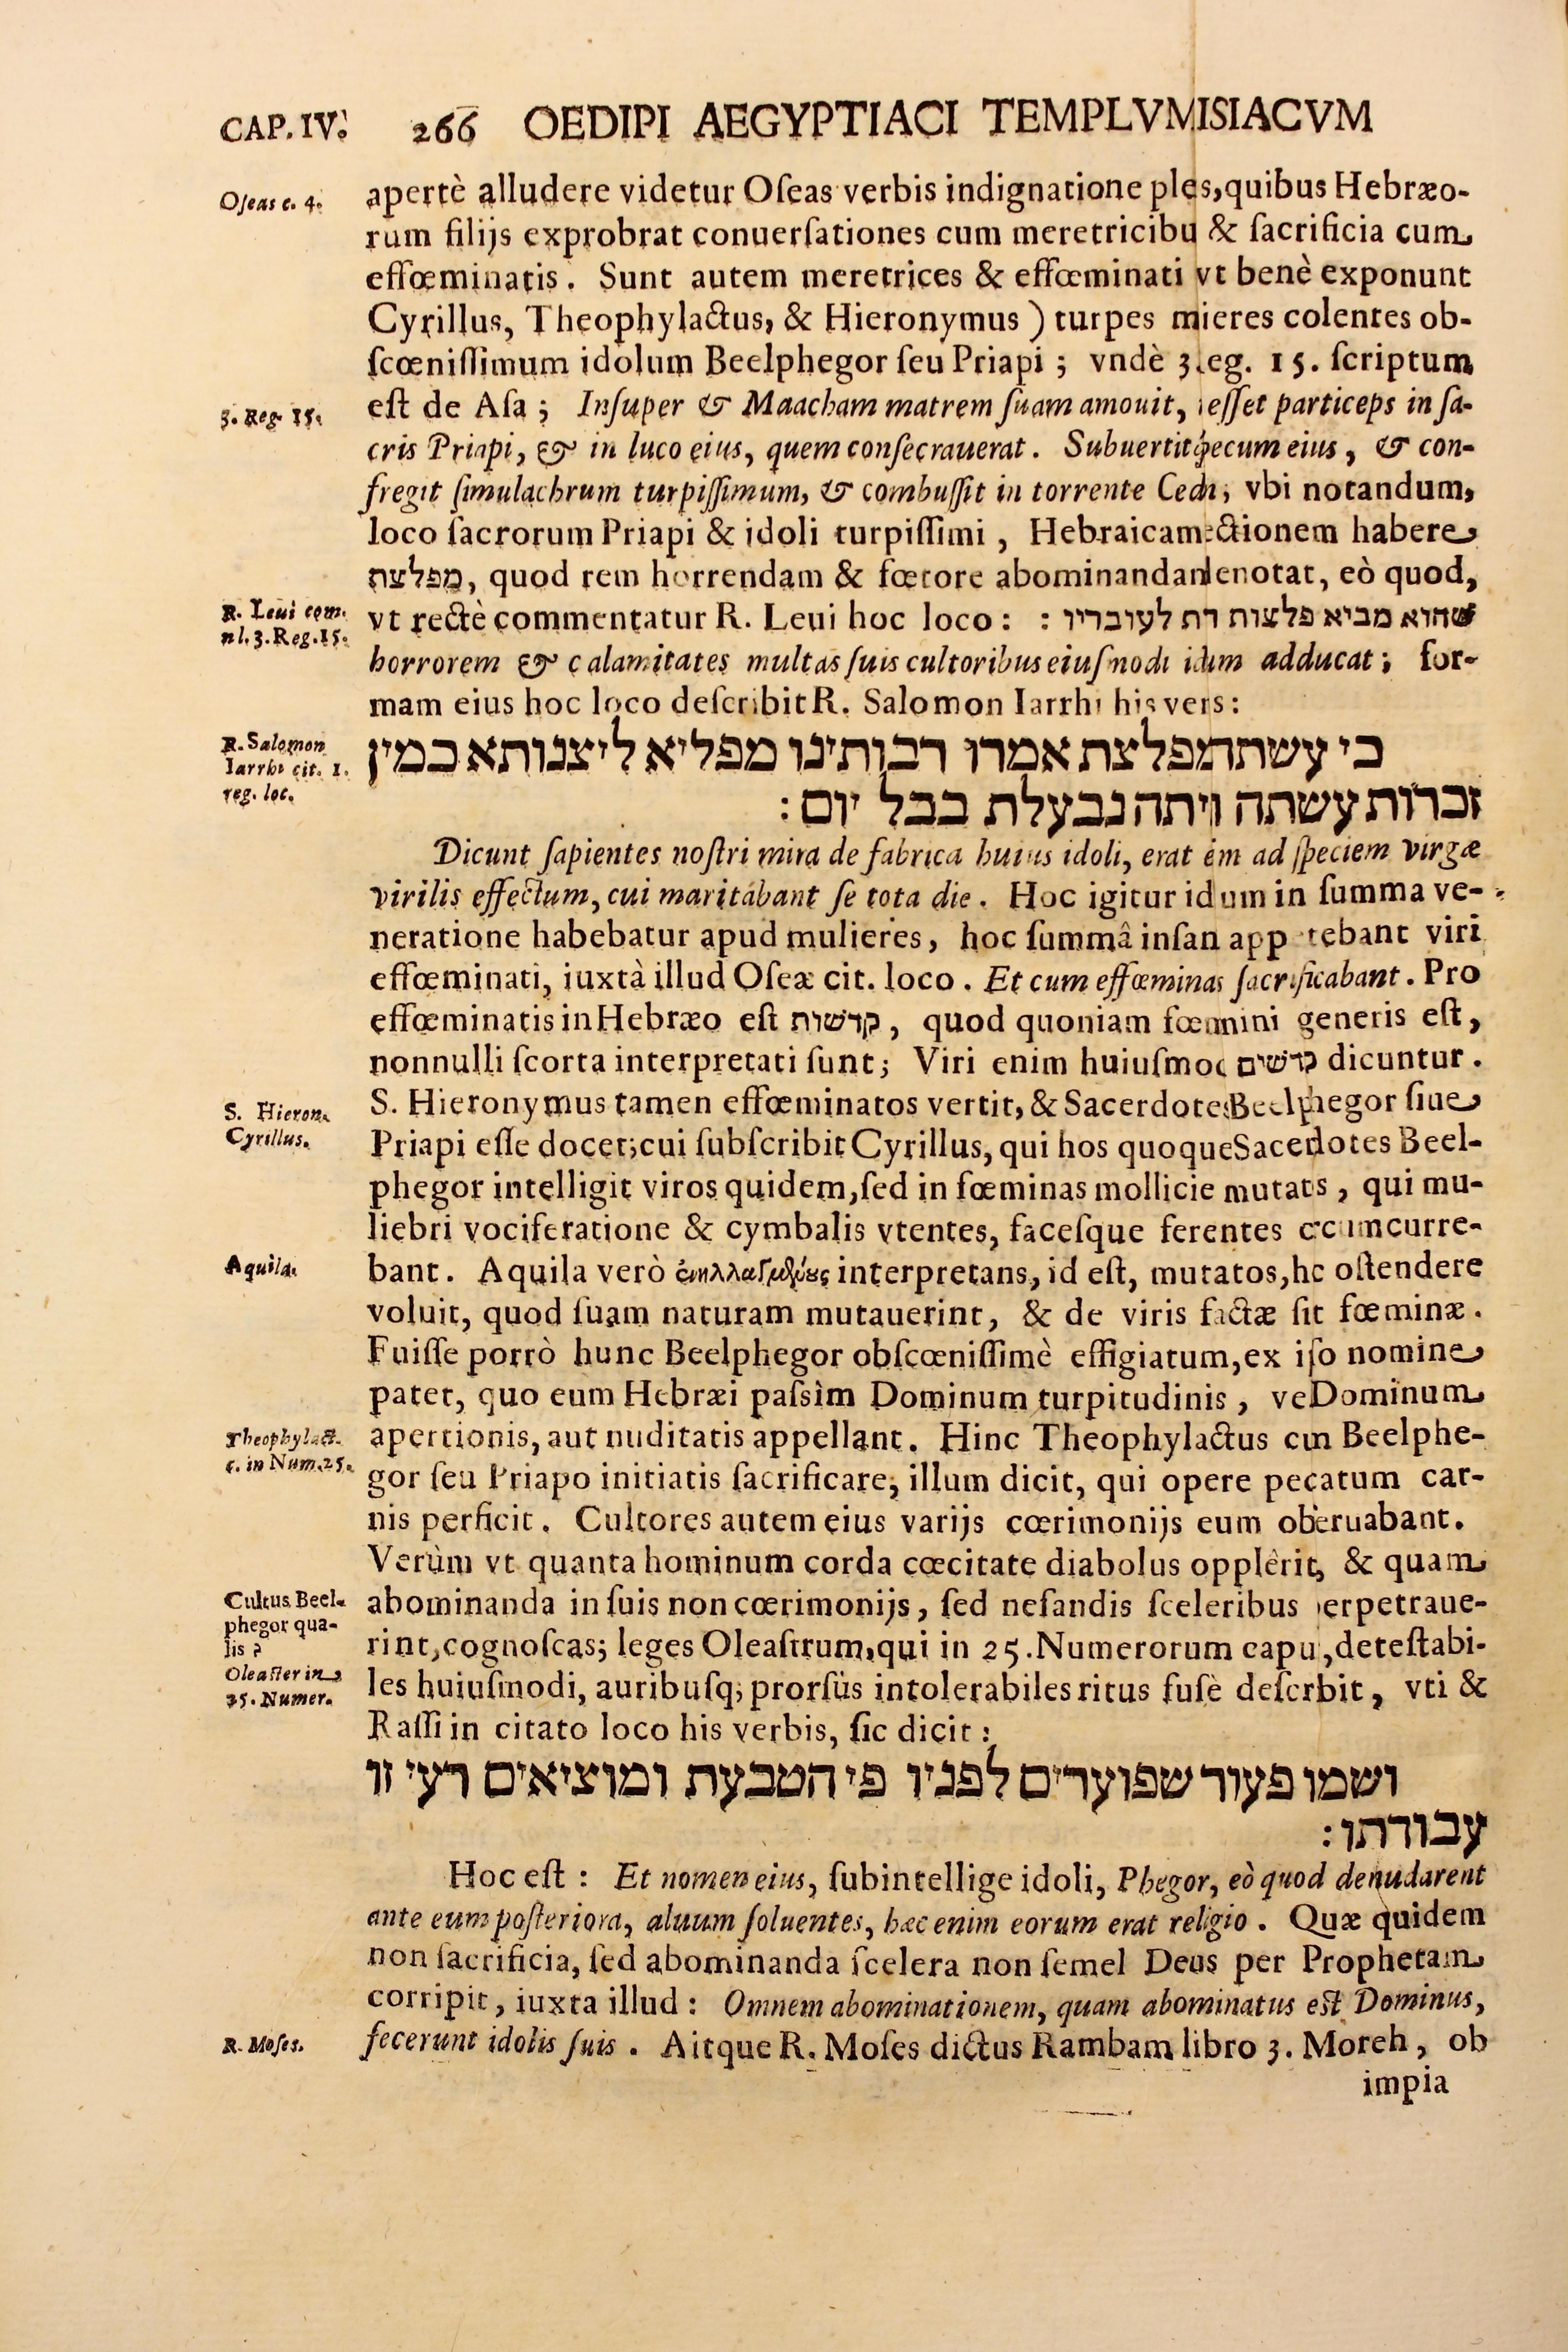 CAP. IV. 266 OEDIPI AEGYPTIACI TEMPLVM ISIACVM
Oſeas c. 4.
apertè alludere videtur Oſeas verbis indignatione ples, quibus Hebræo-
rum filijs exprobrat conuerſationes cum meretricibu & ſacrificia cum
effœminatis. Sunt autem meretrices & effœminati vt benè exponunt
Cyrillus, Theophylactus, & Hieronymus) turpes mieres colentes ob-
ſcœniſſimum idolum Beelphegor ſeu Priapi; vndè 3.eg. 15. ſcriptum
3. Reg. 15.
eſt de Aſa; Inſuper & Maacham matrem ſuam amouit, eſſet particeps in ſa-
cris Priapi, & in luco eius, quem conſecrauerat. Subuertitq́ecum eius, & con-
fregit ſimulachrum turpiſſimum, & combuſſit in torrente Cedn; vbi notandum,
loco ſacrorum Priapi & idoli turpiſſimi, Hebraicam ectionem habere
מפלצת, quod rem horrendam & fœtore abominandam enotat, eò quod,
R. Leui com.
nl. 3. Reg. 15.
vt rectè commentatur R. Leui hoc loco: שהוא מביא פלצות רת לעובריו :
horrorem & calamitates multas ſuis cultoribus eiuſmodi idm adducat; for-
mam eius hoc loco deſcribit R. Salomon Iarrhi his vers:
R. Salomon
Iarrhi cit. 1.
reg. loc.
כי עשתהמפלצת אמרו רבותינו מפליא ליצנותא כמין
זכרות עשתה ויתה נבעלת בבל יום :
Dicunt ſapientes noſtri mira de fabrica huius idoli, erat em ad ſpeciem virgæ
virilis effectum, cui maritabant ſe tota die. Hoc igitur idum in ſumma ve-
neratione habebatur apud mulieres, hoc ſummâ inſan app tebant viri
effœminati, iuxtà illud Oſeæ cit. loco. Et cum effœminas ſacrificabant. Pro
effœminatis in Hebræo eſt קדשות, quod quoniam fœminini generis eſt,
nonnulli ſcorta interpretati ſunt; Viri enim huiuſmoc קדשים dicuntur.
S. Hieron.
Cyrillus.
S. Hieronymus tamen effœminatos vertit, & Sacerdotes Beelphegor ſiue
Priapi eſſe docet; cui ſubſcribit Cyrillus, qui hos quoque Sacerdotes Beel-
phegor intelligit viros quidem, ſed in fœminas mollicie mutats, qui mu-
liebri vociferatione & cymbalis vtentes, faceſque ferentes ccumcurre-
Aquila.
bant. Aquila verò interpretans, id eſt, mutatos, hc oſtendere
voluit, quod ſuam naturam mutauerint, & de viris factæ ſit fœminæ.
Fuiſſe porrò hunc Beelphegor obſcœniſſimè effigiatum, ex iſo nomine
patet, quo eum Hebræi paſsìm Dominum turpitudinis, ve Dominum
Theophylact.
c. in Num. 25.
apertionis, aut nuditatis appellant. Hinc Theophylactus cm Beelphe-
gor ſeu Priapo initiatis ſacrificare, illum dicit, qui opere pecatum car-
nis perficit. Cultores autem eius varijs cœrimonijs eum oberuabant.
Verùm vt quanta hominum corda cœcitate diabolus opplêrit, & quam
Cultus Beel-
phegor qua-
lis?
abominanda in ſuis non cœrimonijs, ſed nefandis ſceleribus perpetraue-
rint, cognoſcas; leges Oleaſtrum, qui in 25. Numerorum capu, deteſtabi-
Oleaſter in
25. Numer.
les huiuſmodi, auribuſq; prorſùs intolerabiles ritus fuſè deſcrbit, vti &
Raſſi in citato loco his verbis, ſic dicit:
ושמו פעור שפוערים לפניו פי הטבעת ומוציאים רעי זו
עבודתו :
Hoc eſt: Et nomen eius, ſubintellige idoli, Phegor, eò quod denudarent
ante eum poſteriora, aluum ſoluentes, hæc enim eorum erat religio. Quæ quidem
non ſacrificia, ſed abominanda ſcelera non ſemel Deus per Prophetam
corripit, iuxta illud: Omnem abominationem, quam abominatus eſt Dominus,
R. Moſes.
fecerunt idolis ſuis. Aitque R. Moſes dictus Rambam libro 3. Moreh, ob
impia